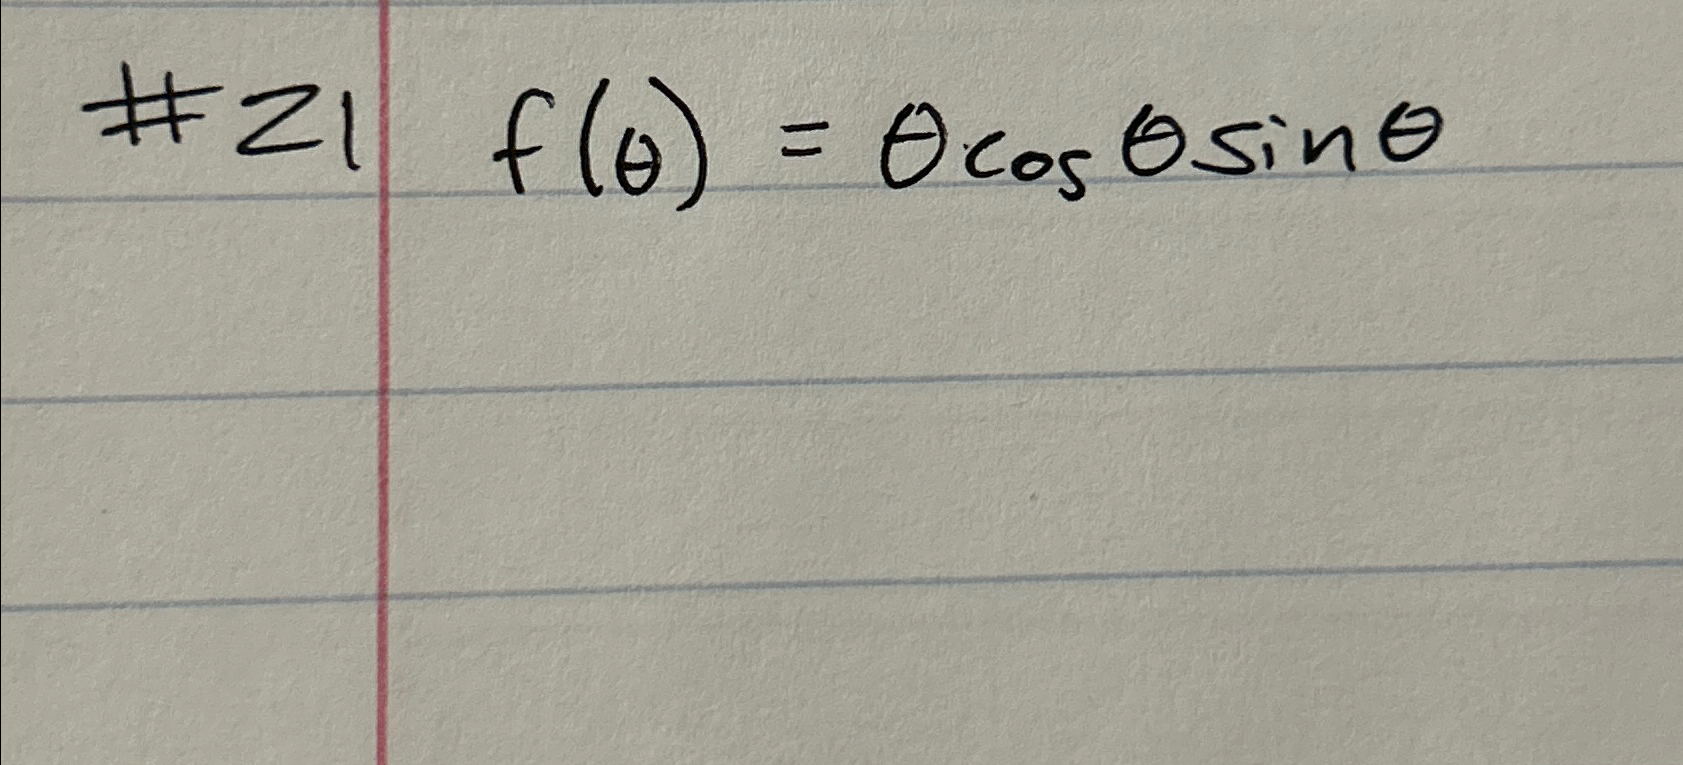 #21 f(θ) = θ cos θ sin θ